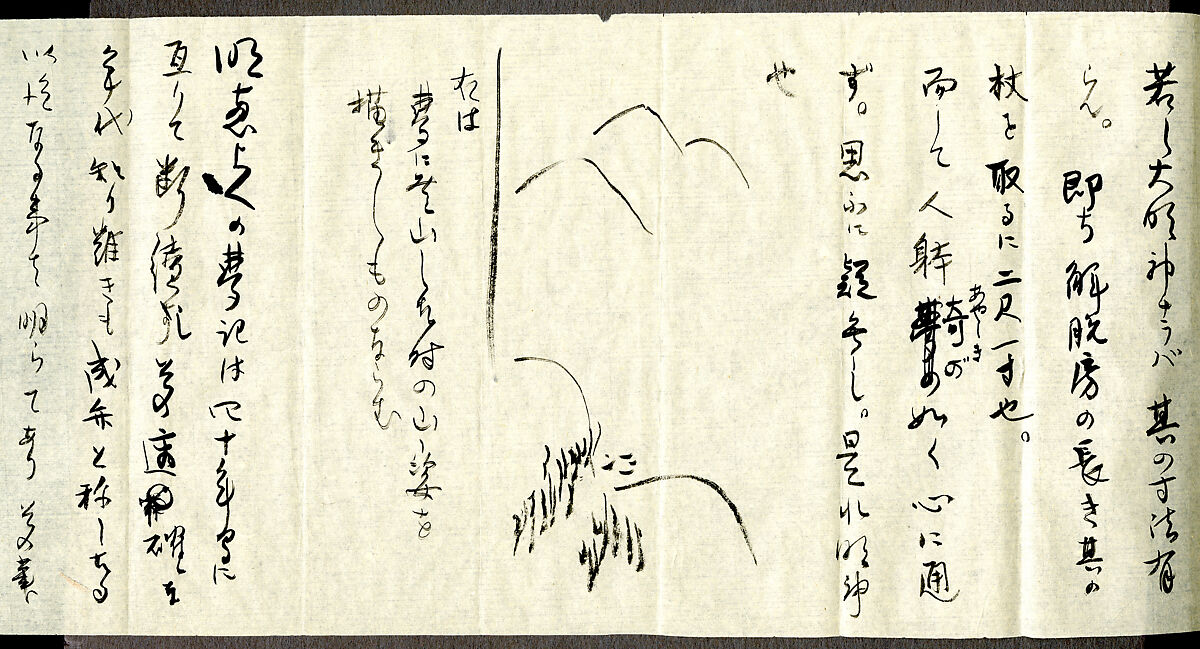 若し大明神ナラバ 其の寸法有
らん。 即ち解脱房の長き其の
杖を取るに二尺一寸也。
而して人躰奇が如く心に通
あやしき
ず。思ふに疑無し。是れ明神
也
右は
夢に登山したる時の山姿を
描きしものならむ
明恵上人の夢記は四十年間に
亙りて断続し其の適確な
年代知り難きも成弁と称したる
以後なる事は明らであり 其の筆